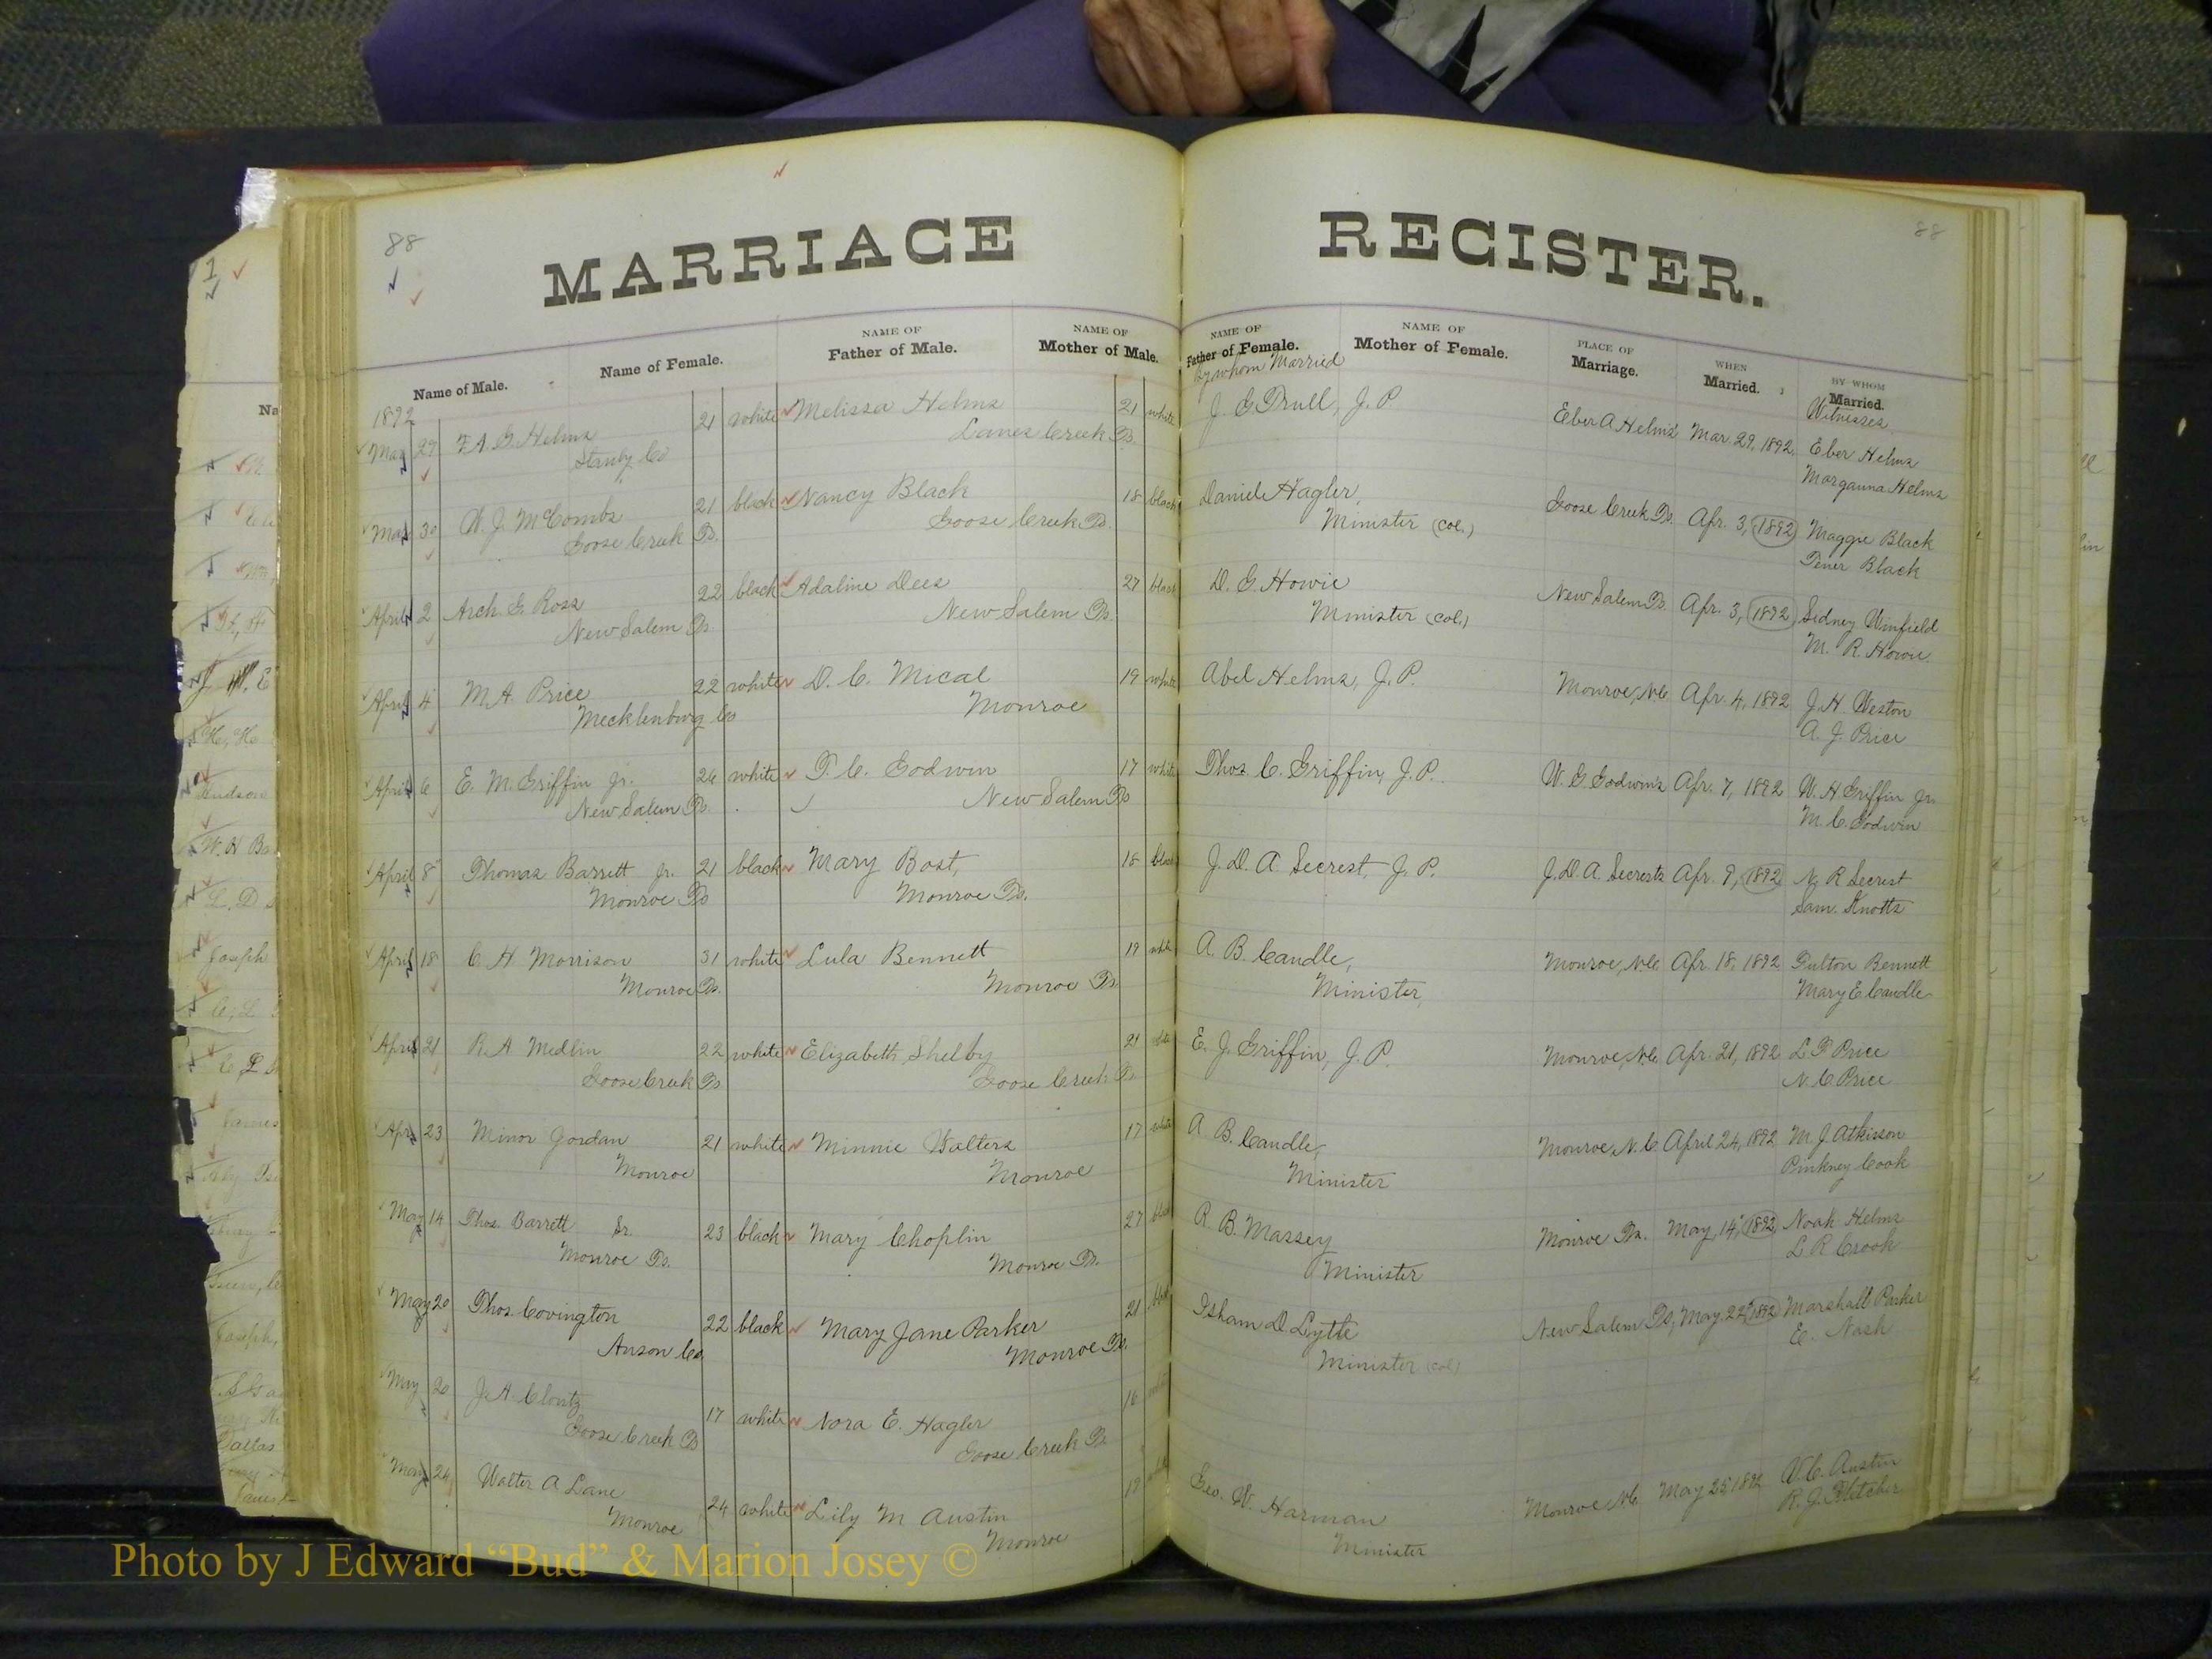 88
MARRIAGE REGISTER.
88
Name of Male.
Name of Female.
NAME OF
Father of Male.
NAME OF
Mother of Male.
NAME OF
Father of Female.
By whom Married
NAME OF
Mother of Female.
PLACE OF
Marriage.
WHEN
Married.
BY WHOM
Married.
Witnesses
1892
Mar 29 F. A. G. Helms 21 white Melissa Helms 21 white J. G. Trull, J. P. Eber A Helms Mar. 29, 1892. Eber Helms
Stanly Co Lanes Creek Ts. Margauna Helms
Mar 30 W. J. McCombs 21 black Nancy Black 18 black Daniel Hagler, Goose Creek Ts. Apr. 3, 1892 Maggie Black
Goose Creek Ts. Goose Creek Ts. Minister (col.) Black
April 2 Arch G. Ross 22 black Adaline Dees 27 black D. G. Howie New Salem Ts. Apr. 3, 1892 Sidney Winfield
New Salem Ts. New Salem Ts. Minister (col.) M. R. Howie
April 4 M. A. Price 22 white D. C. Mical 19 white Abel Helms, J. P. Monroe, N.C. Apr. 4, 1892 J. H. Weston
Mecklenburg Co Monroe A. J. Price
April 6 E. M. Griffin Jr. 26 white T. C. Godwin 17 white Thos. C. Griffin, J. P. W. G. Godwin's Apr. 7, 1892 W. H. Griffin Jr.
New Salem Ts. New Salem Ts M. C. Godwin
April 8 Thomas Barrett Jr. 21 black Mary Bost, 18 black J. D. A. Secrest, J. P. J. D. A. Secrests Apr. 9, 1892 N. R Secrest
Monroe Ts Monroe Ts. Sam. Knotts
April 18 C. H. Morrison 31 white Lula Bennett 19 white A. B. Caudle, Monroe, N.C. Apr. 18, 1892 Fulton Bennett
Monroe Ts. Monroe Ts Minister, Mary E. Caudle
April 21 R. A. Medlin 22 white Elizabeth Shelby 21 white E. J. Griffin, J. P. Monroe, N.C. Apr. 21, 1892 L. F. Price
Goose Creek Ts Goose Creek Ts. N. C. Price
Apr 23 Minor Gordan 21 white Minnie Walters 17 white A. B. Caudle, Monroe, N. C. April 24, 1892 M. J. Atkisson
Monroe Monroe Minister Pinkney Cook
May 14 Thos. Barrett Sr. 23 black Mary Choplin 27 black R. B. Massey Monroe Ts. May, 14, 1892 Noah Helms
Monroe Ts. Monroe Ts. Minister L. R. Crook
May 20 Thos. Covington 22 black Mary Jane Parker 21 black Isham D. Lytle New Salem Ts, May. 22, 1892 Marshall Parker
Anson Co. Monroe Ts. Minister (col) E. Nash
May 20 J. A. Clontz 17 white Nora E. Hagler 16 white
Goose Creek Ts Goose Creek Ts
May 24 Walter A Lane 24 white Lily M Austin 19 white Geo. W. Harman Monroe N.C. May 25, 1892 V. C. Austin
Monroe Monroe Minister R. J. Fletcher
Photo by J Edward “Bud” & Marion Josey ©